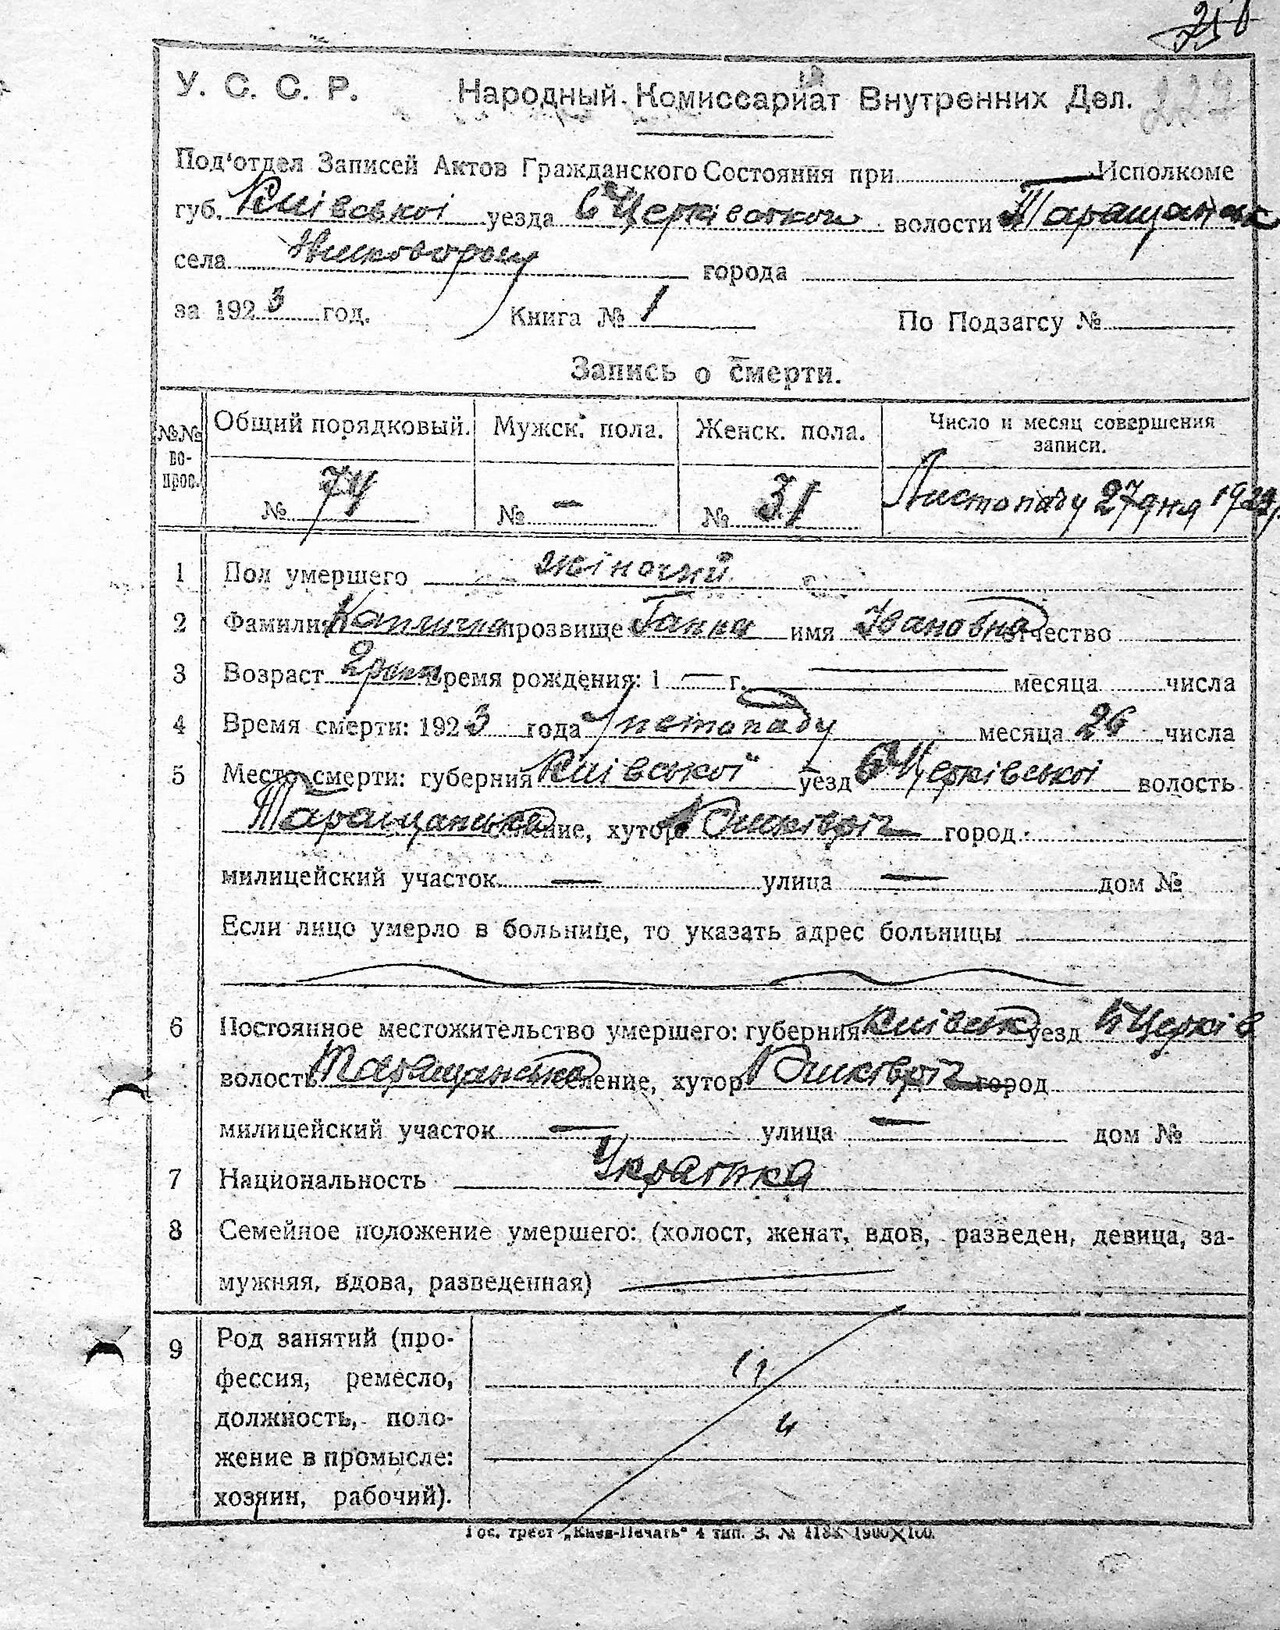 251
227
У. С. С. Р. Народный Комиссариат Внутренних Дел.
Под'отдел Записей Актов Гражданского Состояния при Исполкоме
губ. Київської уезда Б Церківської волости Таращанськ
села города
за 1923 год. Книга № 1 По Подзагсу №
Запись о смерти.
№№ вопрос. Общий порядковый. Мужск. пола. Женск. пола. Число и месяц совершения записи.
№ 74 № — № 31 Листопаду 27 дня 1923
1 Пол умершего жіночий
2 Фамилия прозвище Ганна имя Івановна отчество
3 Возраст 2 роки время рождения: 1 — г. месяца числа
4 Время смерти: 1923 года Листопаду месяца 26 числа
5 Место смерти: губерния Київської уезд Б Церківської волость
Таращанська селение, хутор город
милицейский участок — улица — дом №
Если лицо умерло в больнице, то указать адрес больницы
6 Постоянное местожительство умершего: губерния Київськ уезд Б Церків
волость Таращанська селение, хутор город
милицейский участок — улица — дом №
7 Национальность Українка
8 Семейное положение умершего: (холост, женат, вдов, разведен, девица, за-
мужняя, вдова, разведенная)
9 Род занятий (про-
фессия, ремесло,
должность, поло-
жение в промысле:
хозяин, рабочий).
Гос. трест „Киев-Печать" 4 тип. З. №